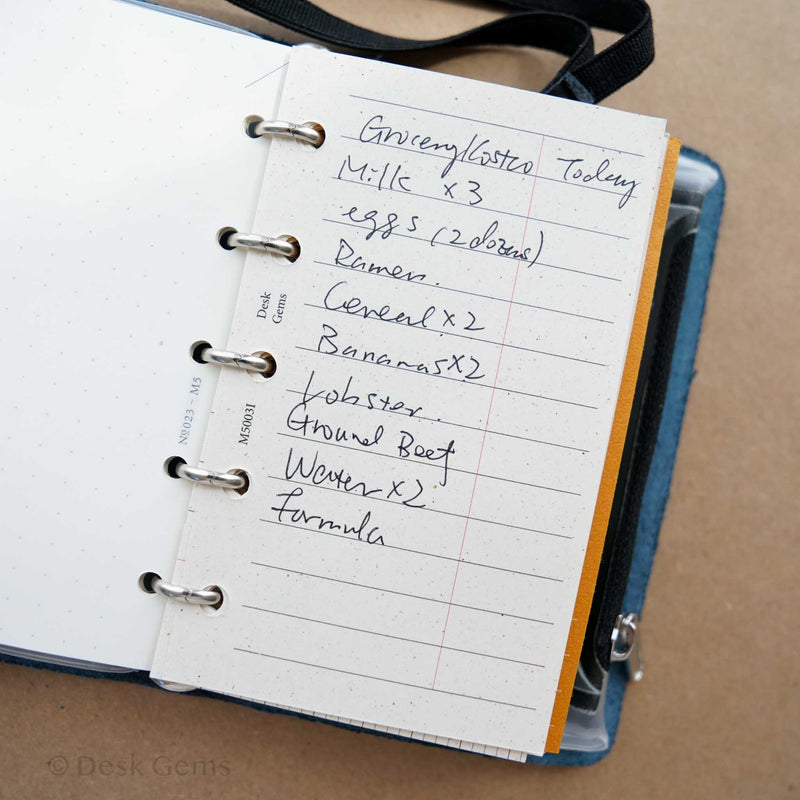 Grocery/Costco Today
Milk x3
eggs (2 dozens)
Ramen.
Cereal x2
Bananas x2
Lobster.
Ground Beef
Water x2
formula
Desk
Gems
M5003I
№023 – M5
© Desk Gems